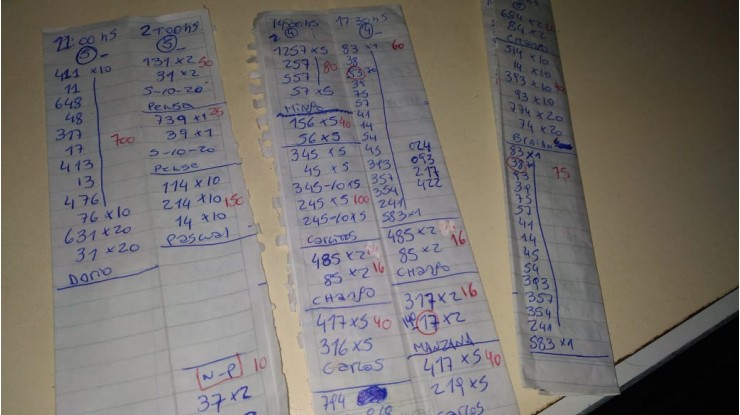 21:00hs
5
411 x10
11
648
48
317
17
413
13
476
700
76 x10
631 x20
31 x20
Dario
21:00hs
5
131 x2 50
31 x2
5-10-20
Pense
739 x1 25
39 x1
5-10-20
Pense
114 x10
214 x10 150
14 x10
Pascual
N-P 10
37 x2
14:00hs
4
1257 x5
257 80
557
57 x5
Mina
156 x5 40
56 x5
345 x5
45 x5
345-10x5
245 x5 100
245-10x5
Carlitos
485 x2
85 x2 16
CHANGO
417 x5 40
316 x5
Carlos
794
17:30hs
4
83 x1 60
38
53
39
75
57
41
14
54
45
393
357
354
241
583 x1
024
093
217
422
485 x2
85 x2 16
CHANGO
317 x2 16
17 x2
MANZANA
417 x5 40
219 x5
Carlos
684 x2
84 x2
CHANGO
514 x10
14 x10
393 x10
93 x10
774 x20
74 x20
Brian
83 x1
38
93
39
75
57
41
14
45
54
393
357
354
241
583 x1
75